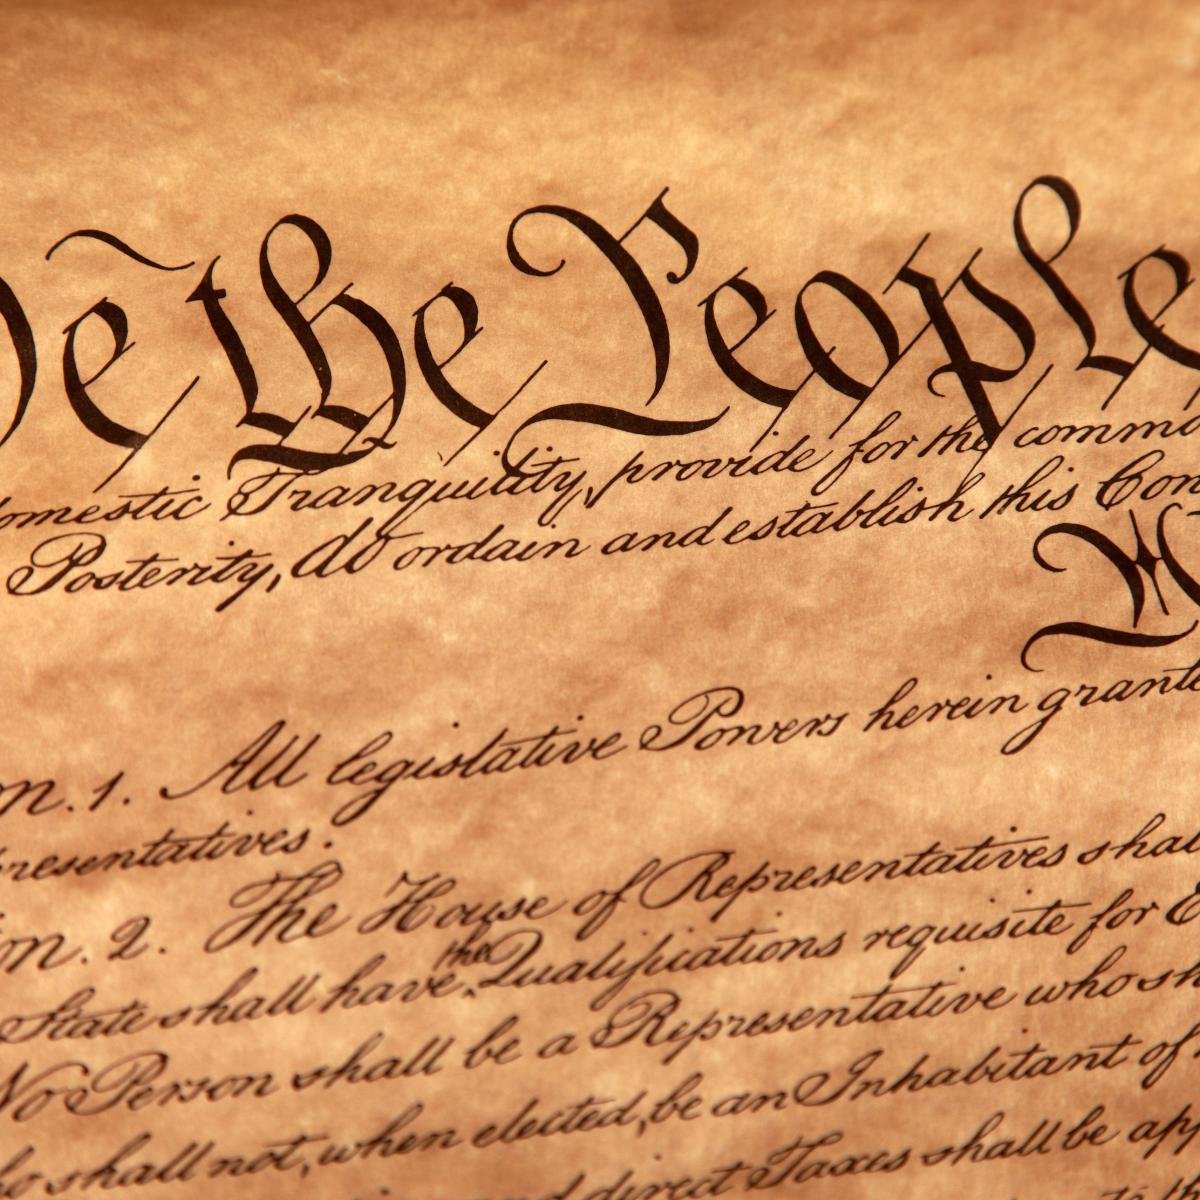 We the People
domestic Tranquility, provide for the commo
Posterity, do ordain and establish this Con
on. 1. All legislative Powers herein grante
resentatives.
on. 2. The House of Representatives shal
the
State shall have Qualifications requisite for E
No Person shall be a Representative who sh
who shall not, when elected, be an Inhabitant of
direct Taxes shall be app